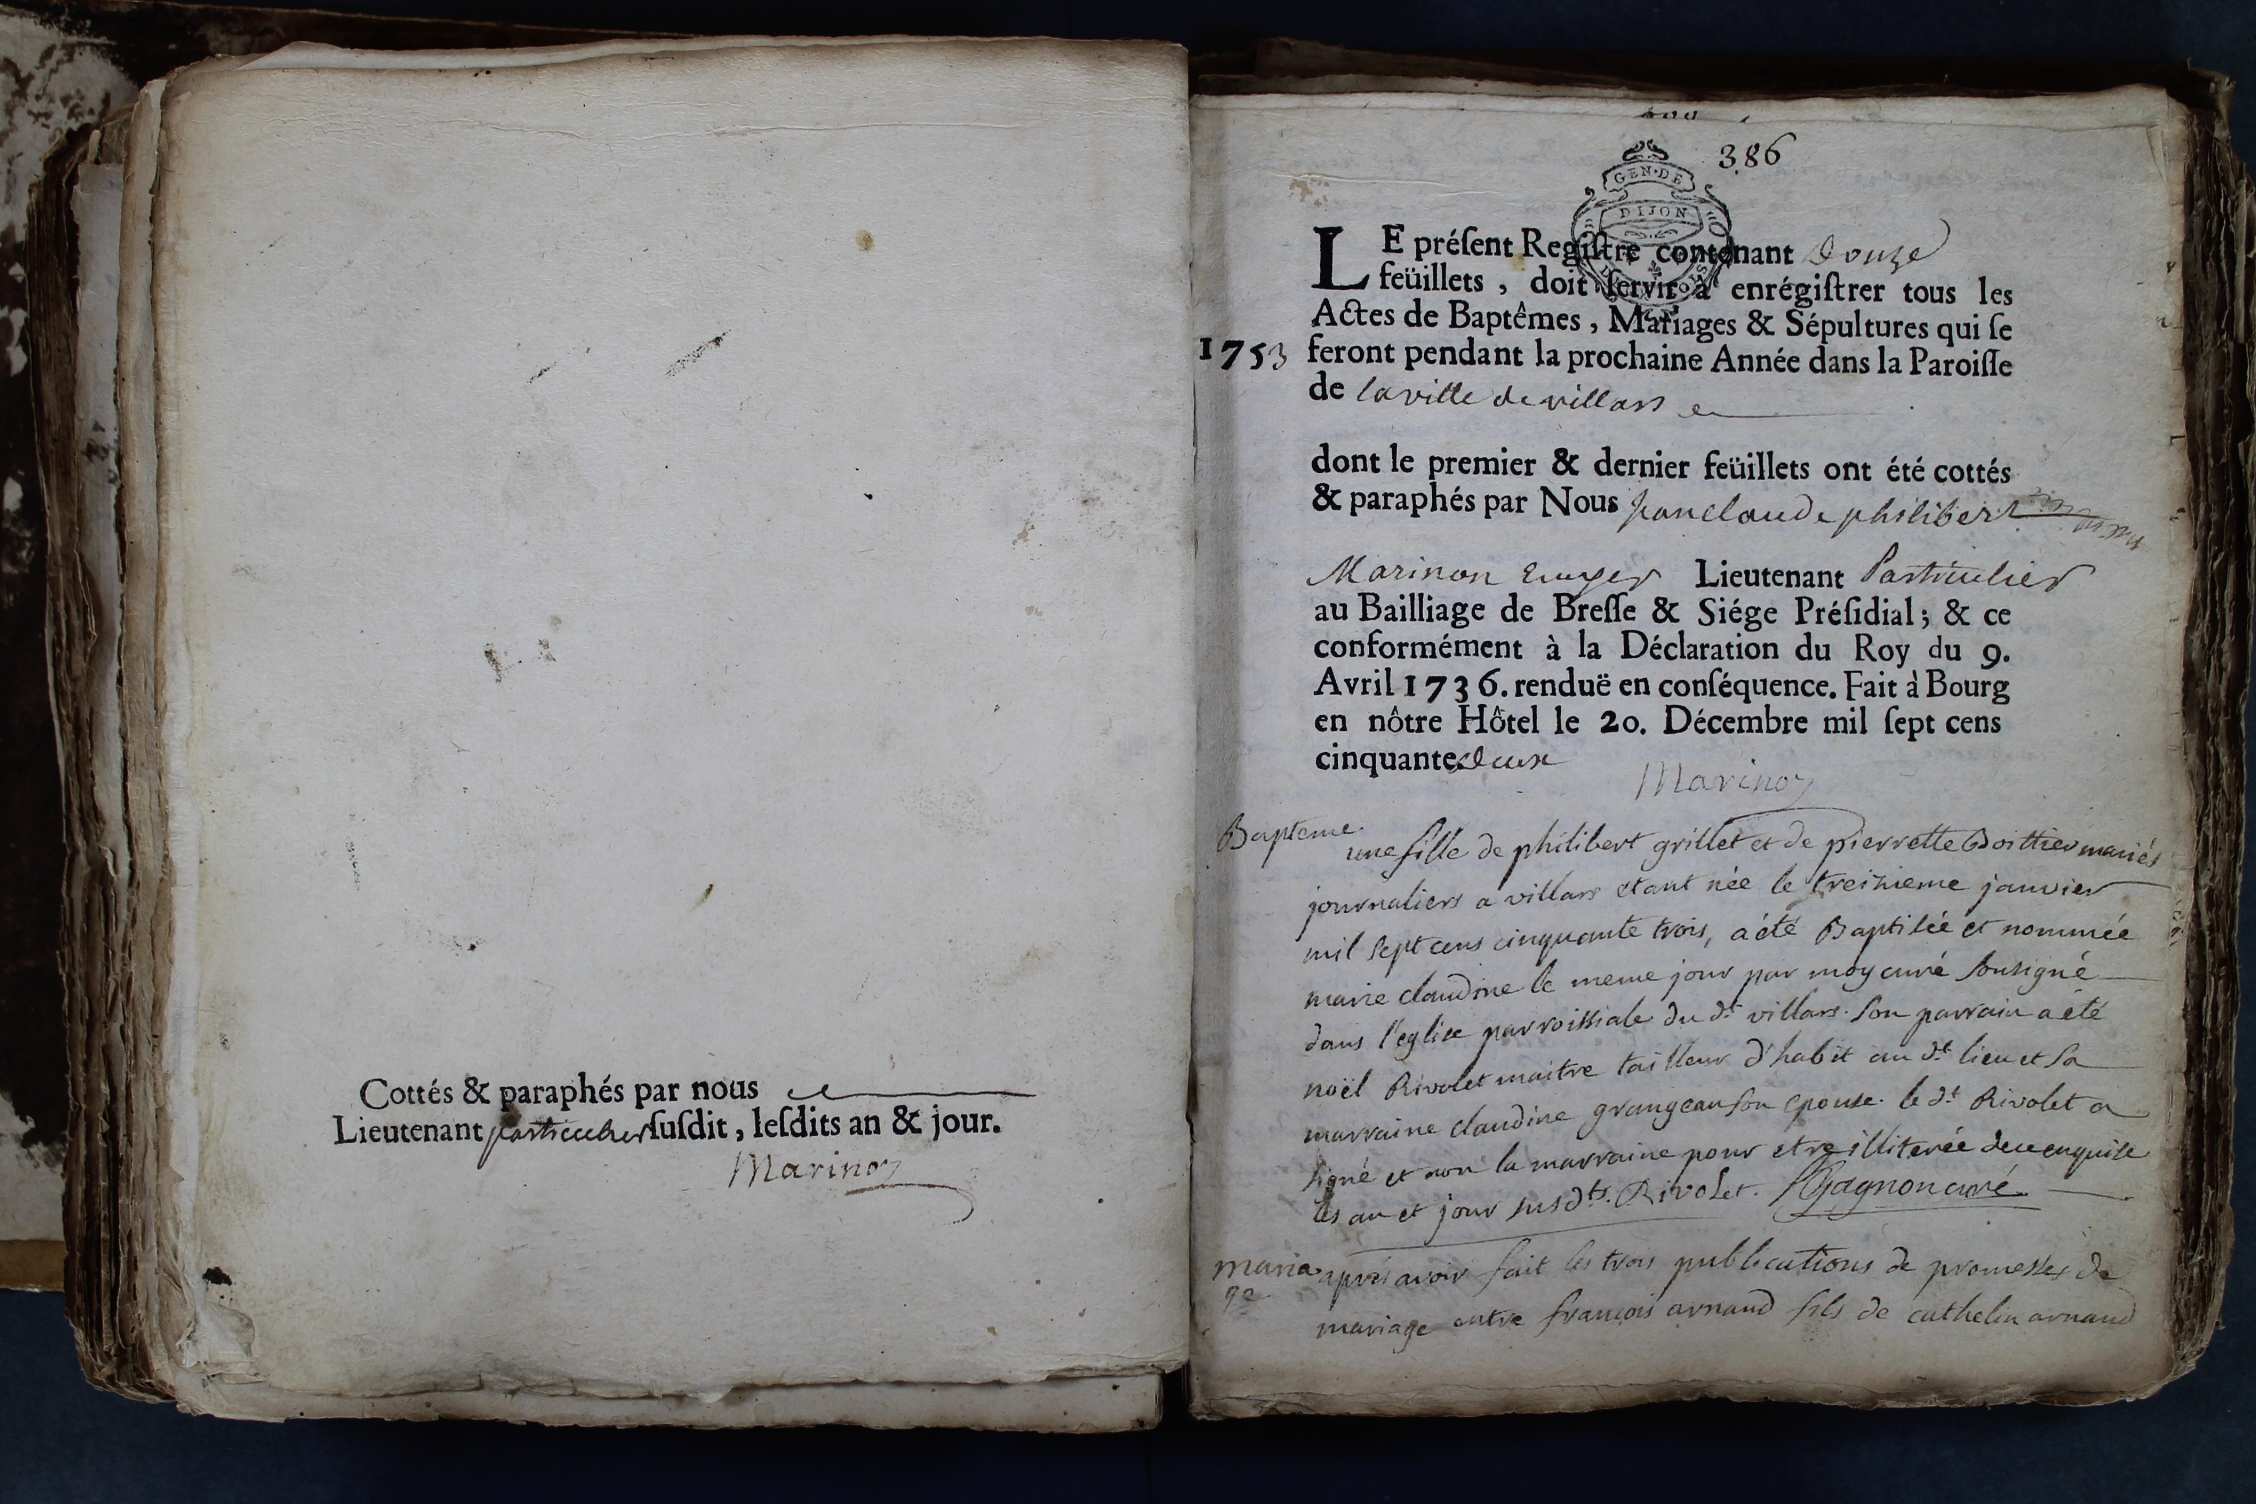 Cottés & paraphés par nous
Lieutenant particulier ſuſdit, leſdits an & jour.
Marinon
386
GEN·DE
DIJON
LE préſent Regiſtre contenant Douze
feüillets, doit ſervir à enrégiſtrer tous les
Actes de Baptêmes, Mariages & Sépultures qui ſe
1753 feront pendant la prochaine Année dans la Paroiſſe
de la ville de villars
dont le premier & dernier feüillets ont été cottés
& paraphés par Nous Jean Claude philibert
Marinon Lieutenant Particulier
au Bailliage de Breſſe & Siége Préſidial; & ce
conformément à la Déclaration du Roy du 9.
Avril 1736. renduë en conſéquence. Fait à Bourg
en nôtre Hôtel le 20. Décembre mil ſept cens
cinquante deux
Marinon
Bapteme. une fille de philibert grillet et de pierrette Boittier mariés
journaliers a villars etant née le treizieme janvier
mil sept cens cinquante trois, a été Baptisée et nommée
marie claudine le meme jour par moy curé sousigné
dans l'eglise parroissiale du dt villars. son parrain a été
noël Rivolet maitre tailleur d'habit au dt lieu et sa
marraine claudine grangean son epouse. le dt Rivolet a
signé et non la marraine pour etre illiterée de ce enquise
les an et jour susdts. Rivolet. Gagnon curé
maria apres avoir fait les trois publications de promesses de
ge mariage entre françois arnaud fils de cathelin arnaud